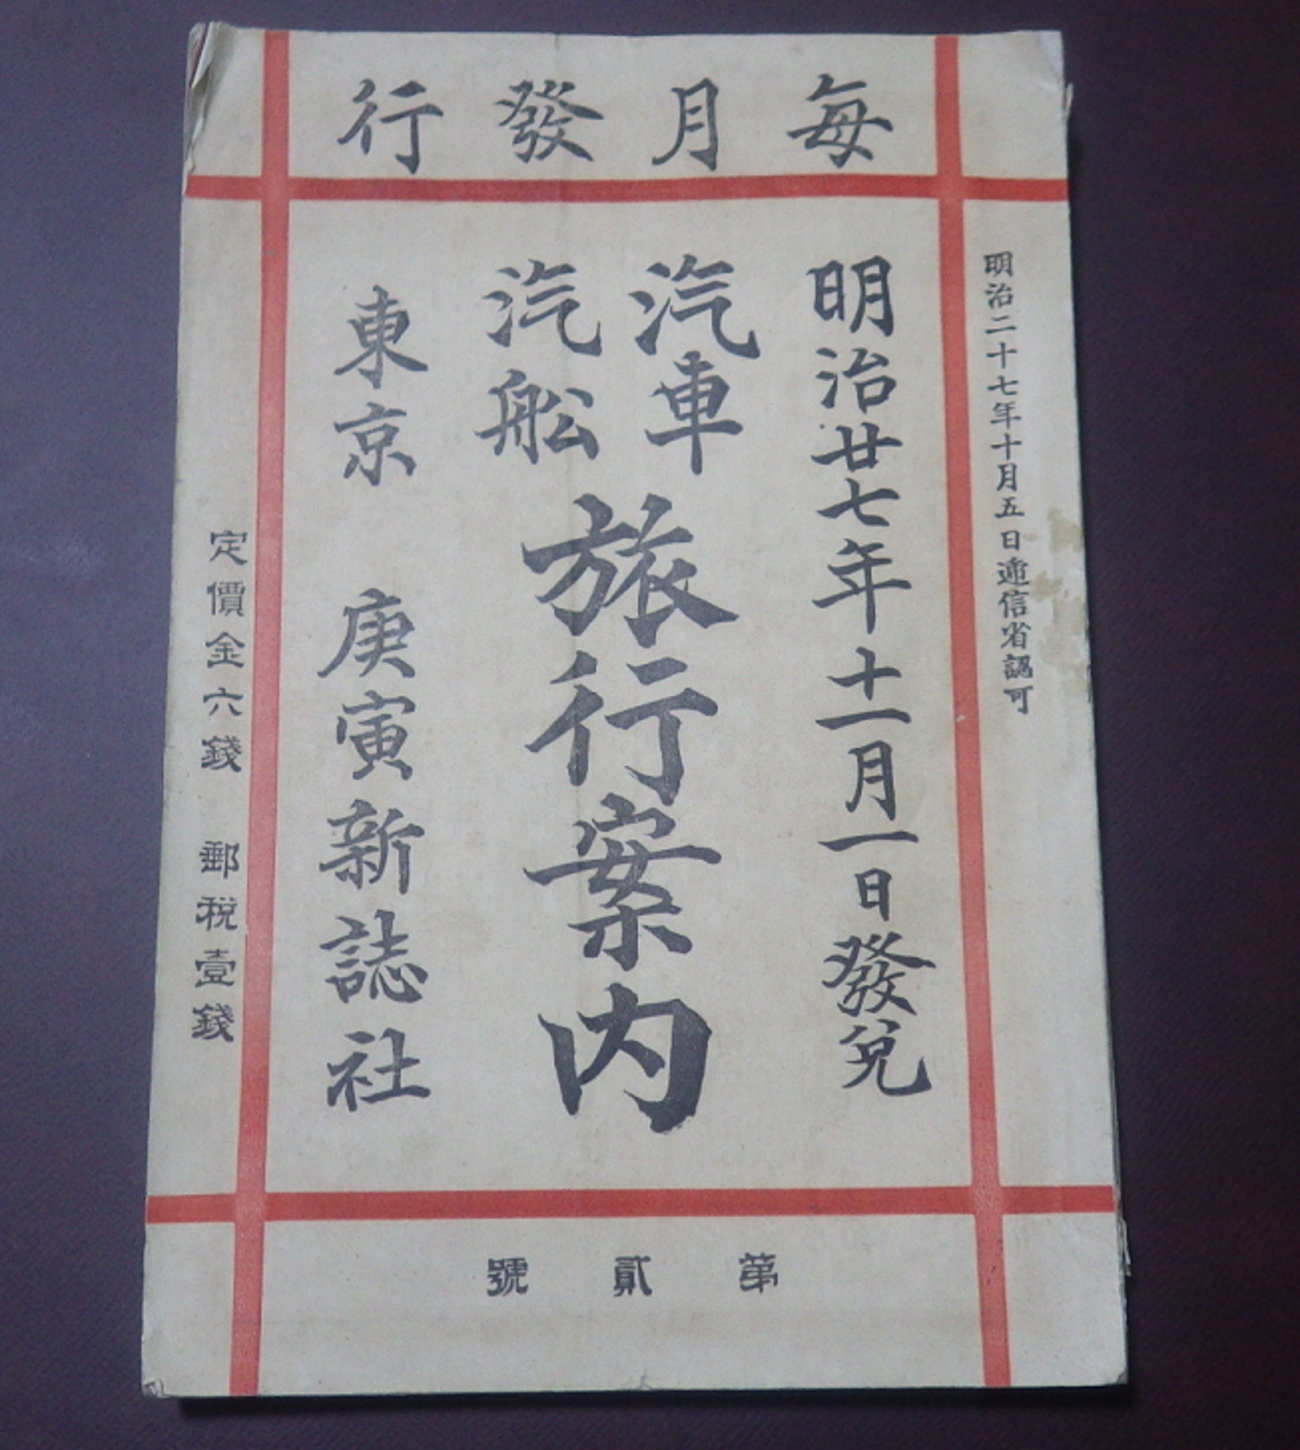 每月發行
明治二十七年十月五日遞信省認可
明治廿七年十一月一日發兌
汽車
汽船
旅行案内
東京 庚寅新誌社
定價金六錢 郵税壹錢
第貳號